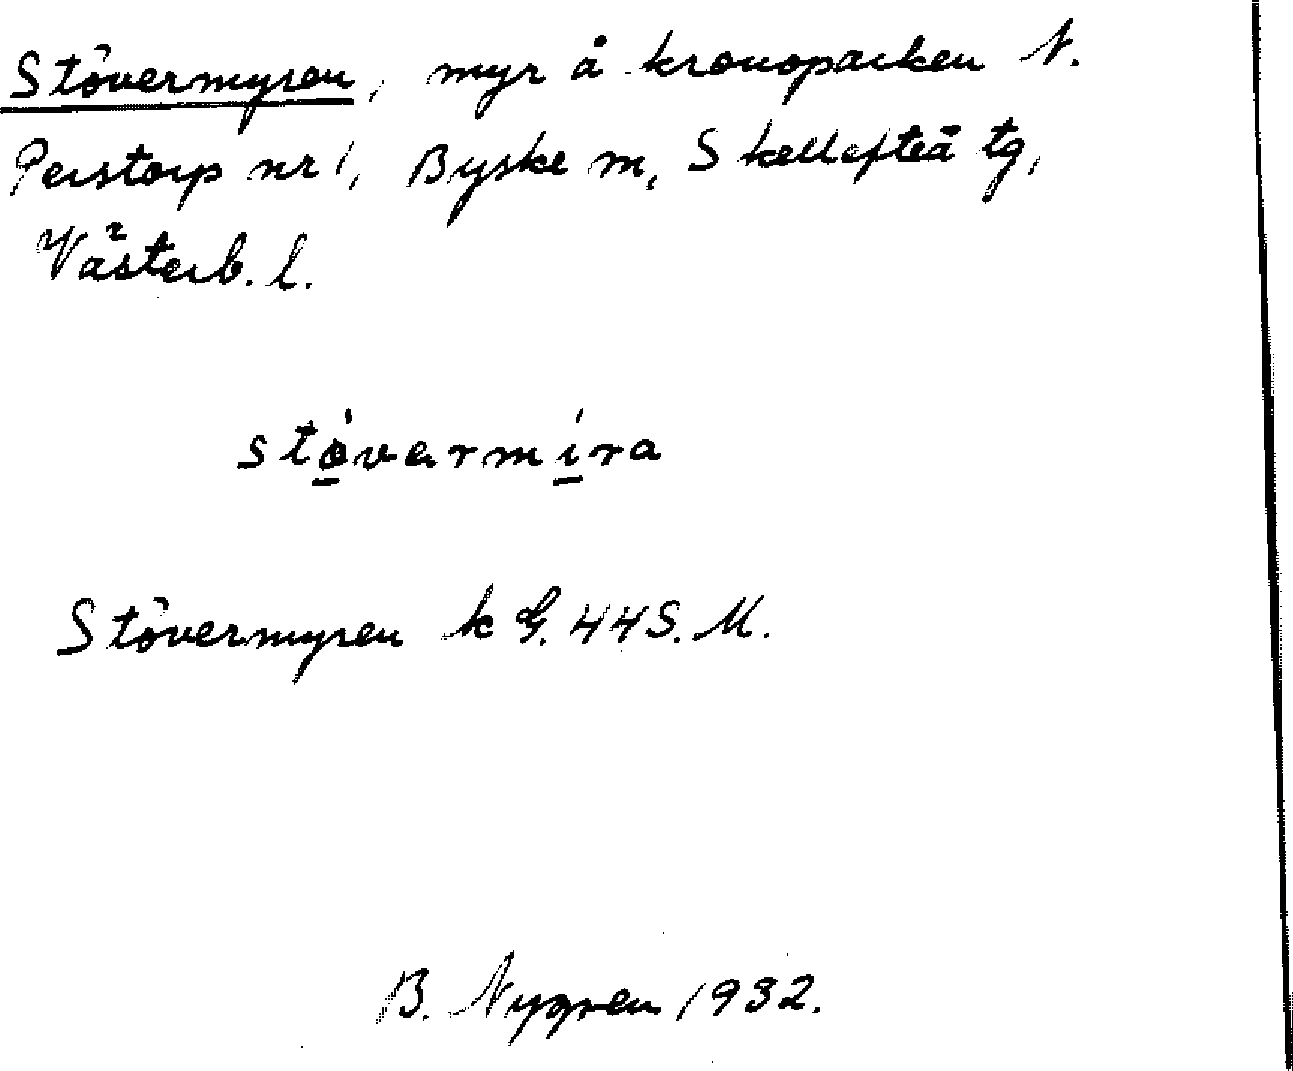 Stövermyren, myr å kronoparken N.
Perstorp nr 1, Byske sn, Skellefteå tg,
Västerb. l.
støvarmira
Stövermyren k G. 44 S. M.
B. Nygren 1932.